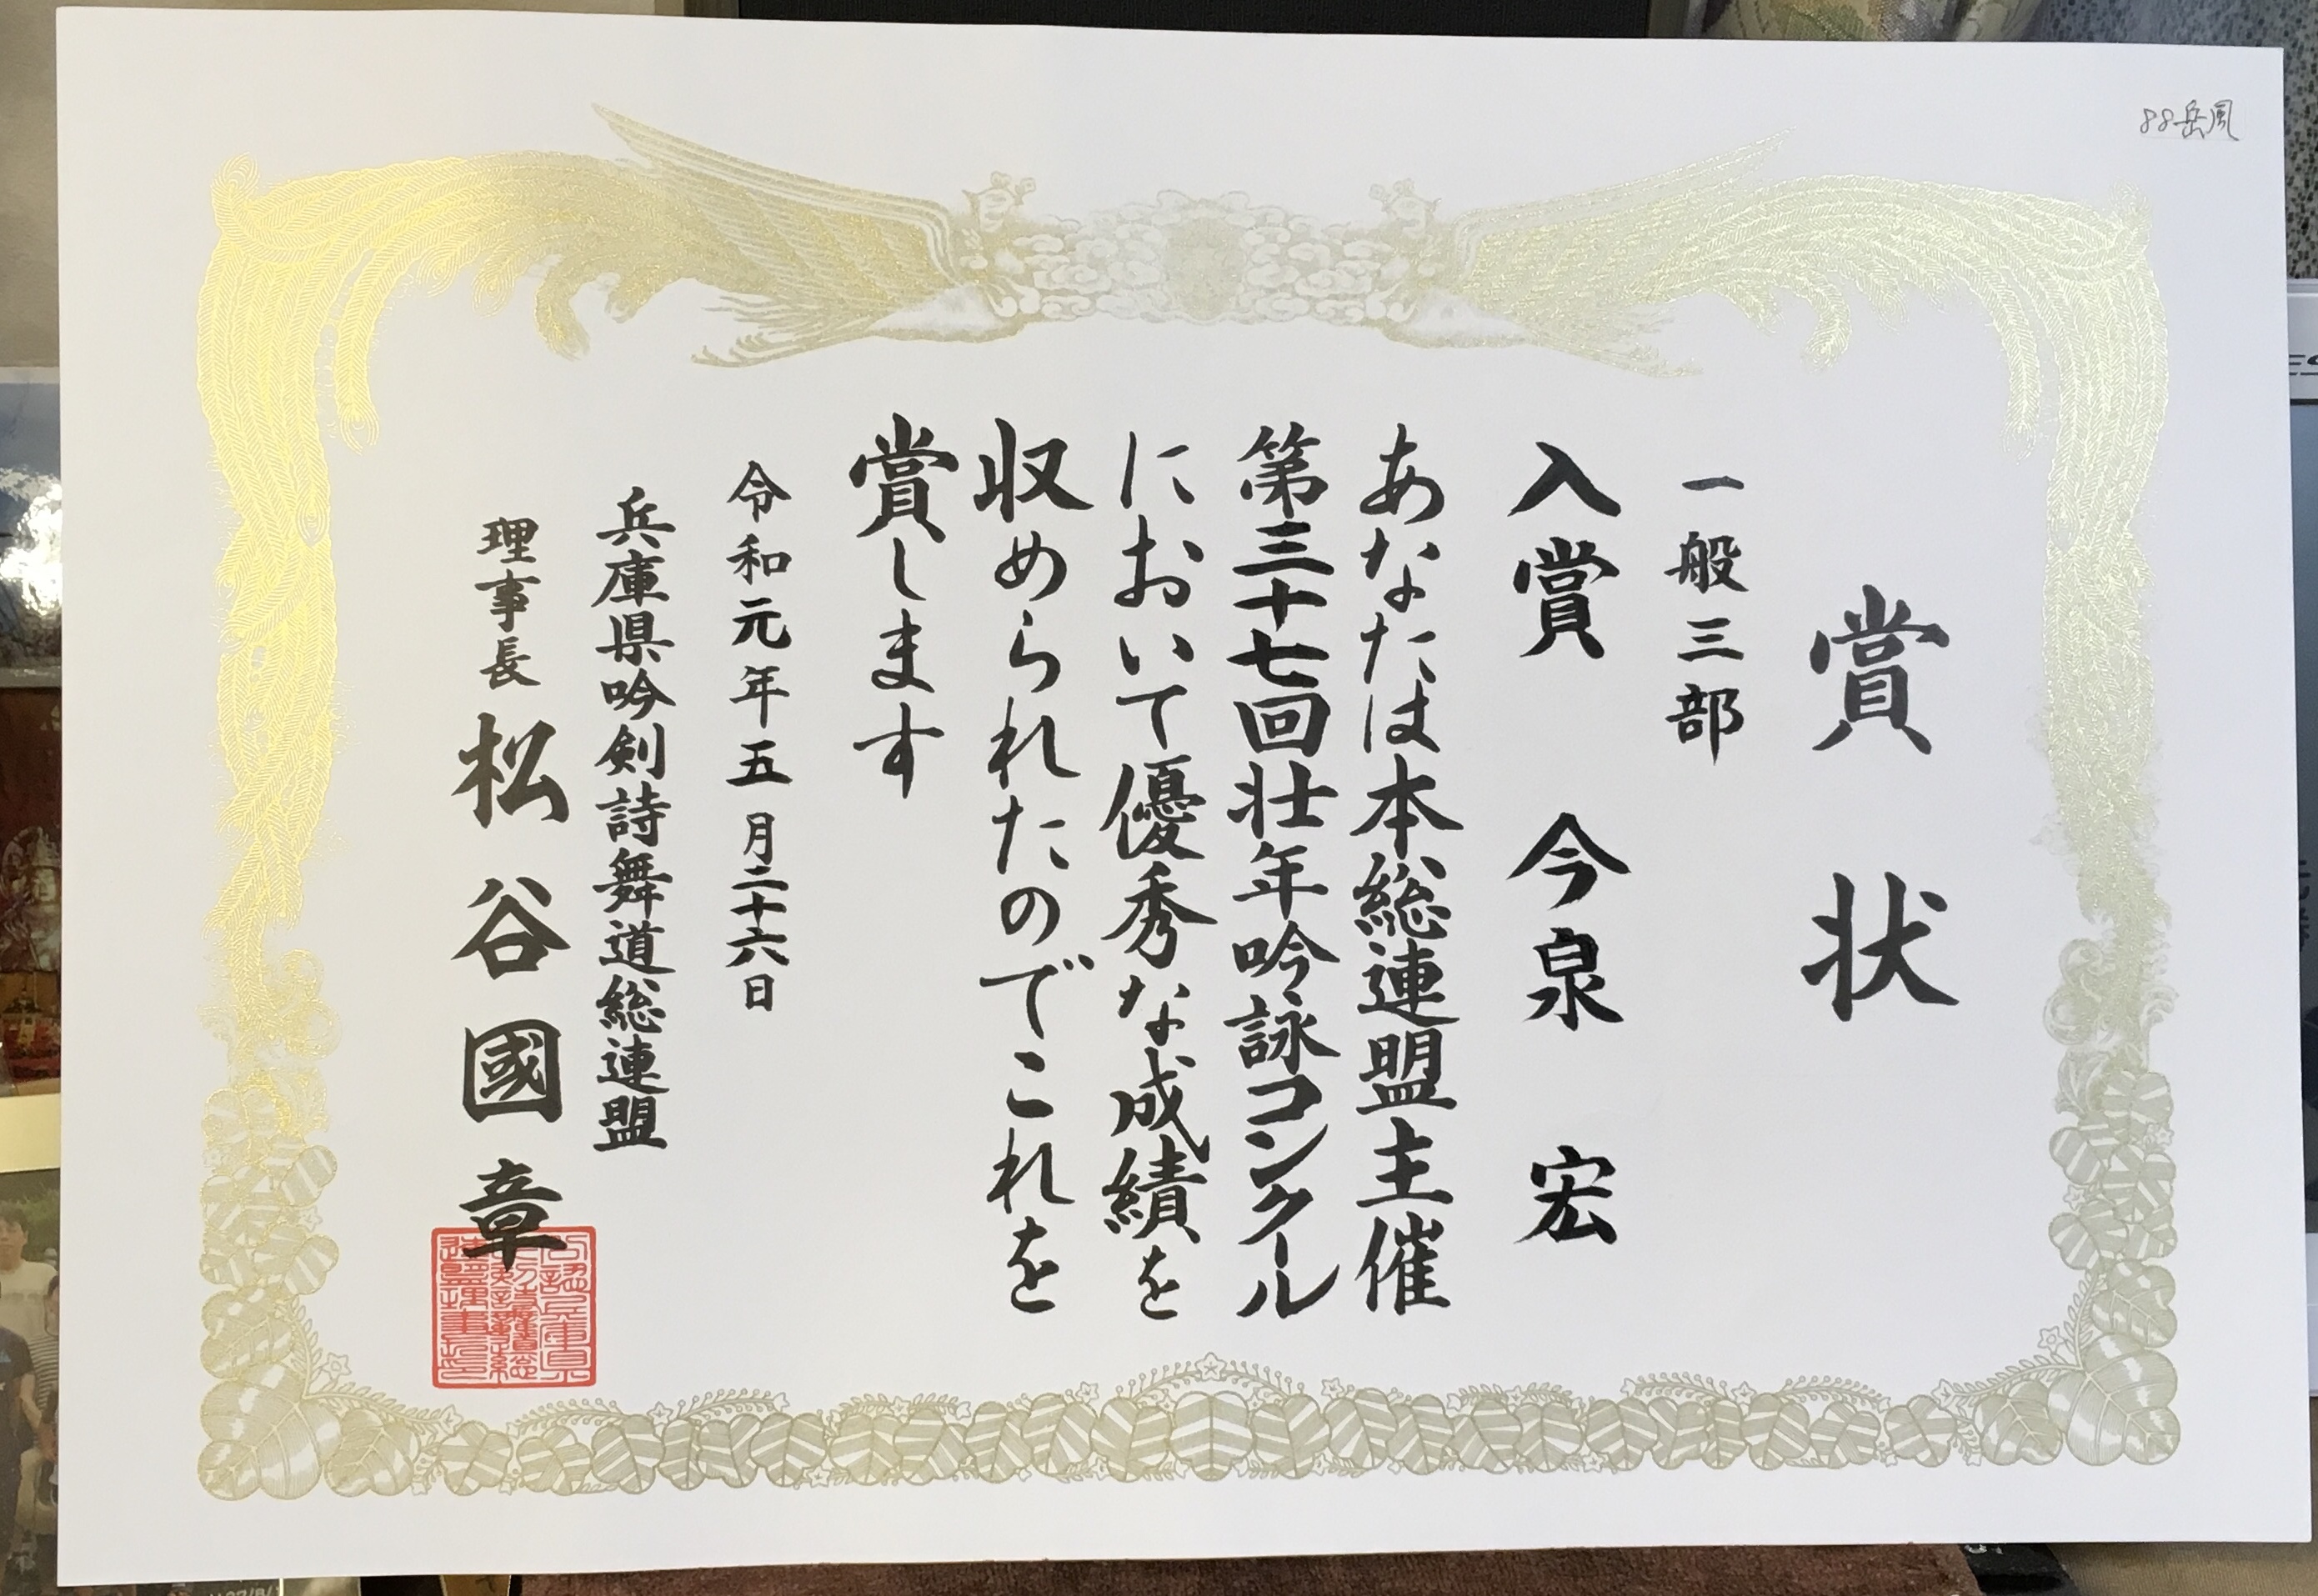 88岳風
賞状
一般三部
入賞 今泉 宏
あなたは本総連盟主催
第三十七回壮年吟詠コンクール
において優秀な成績を
収められたのでこれを
賞します
令和元年五月二十六日
兵庫県吟剣詩舞道総連盟
理事長 松谷國章